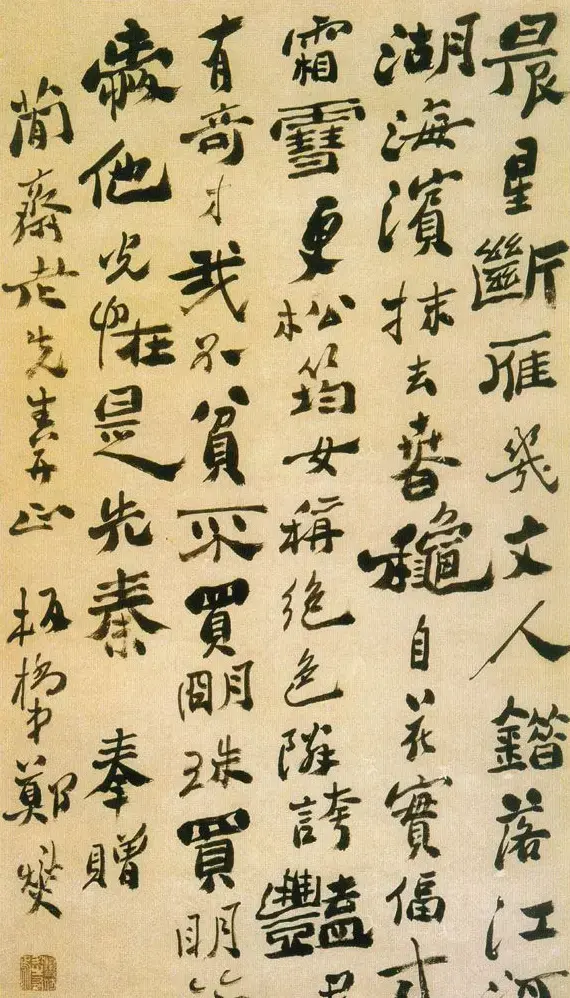 晨星斷雁幾文人錯落江河
湖海濱抹去春龝自花實偪來
霜雪更松筠女稱絕色隣誇豔君
有奇才我不貧不買明珠買明
愛他光怪是先秦 奉贈
蕑齋老先生正 板橋弟鄭燮